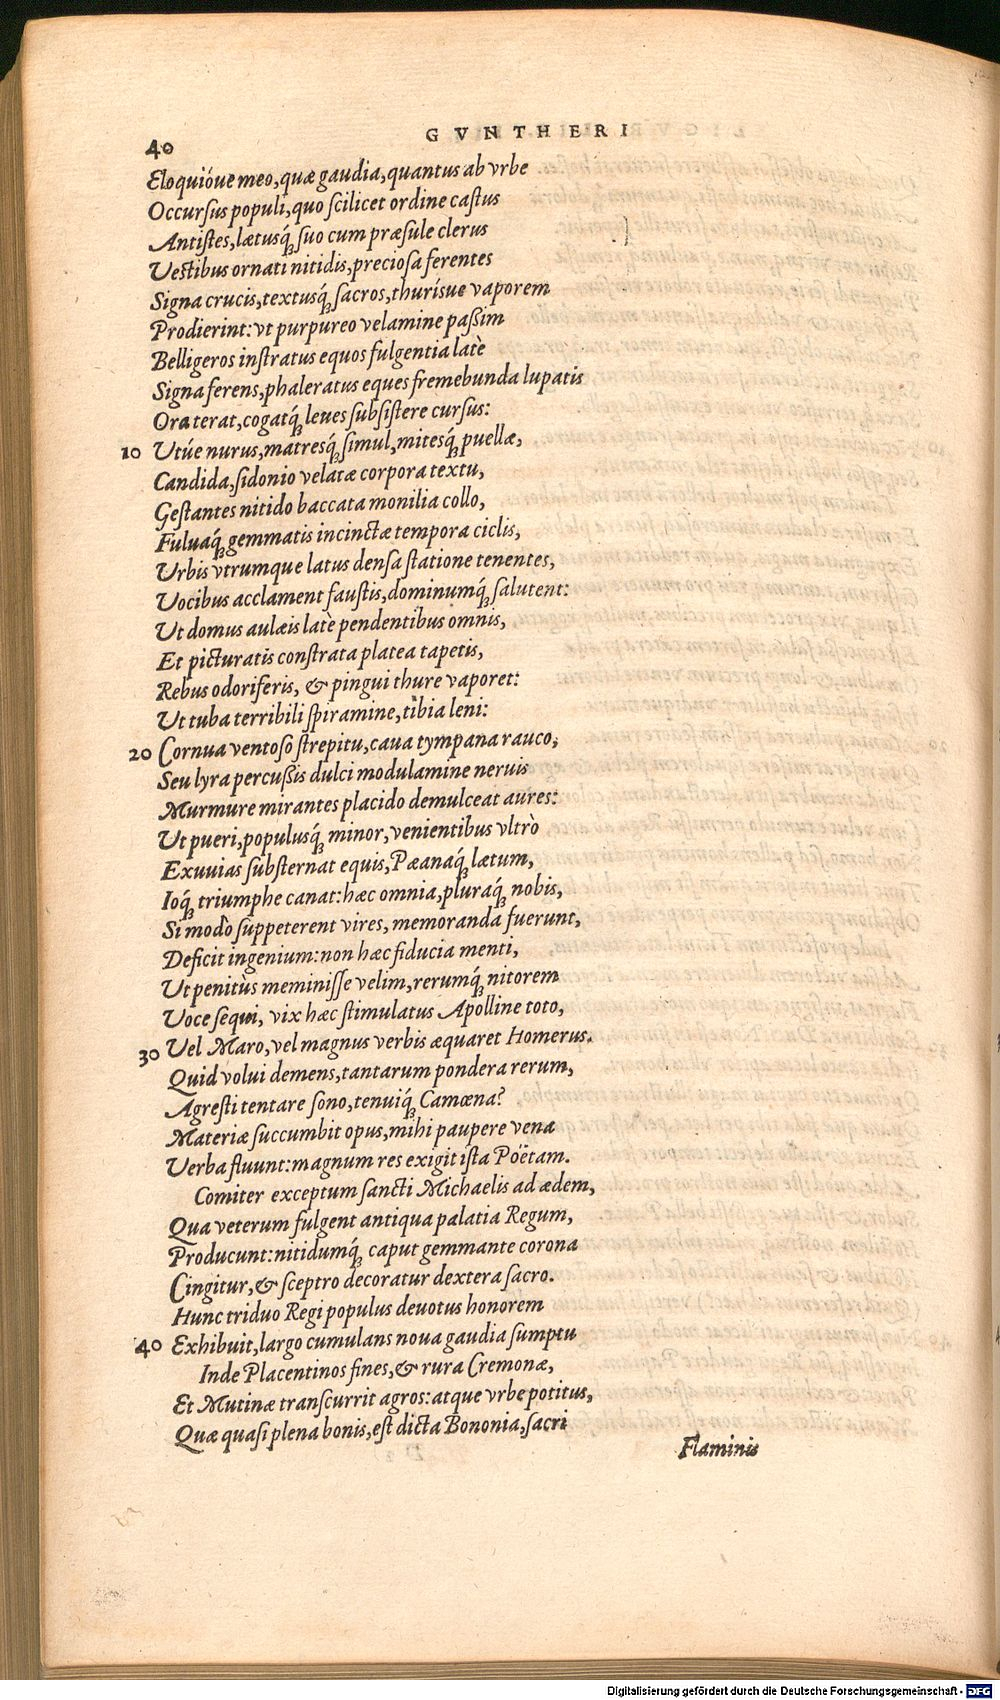 40 GVNTHERI
Eloquióue meo, quæ gaudia, quantus ab vrbe
Occursus populi, quo scilicet ordine castus
Antistes, lætusq́; suo cum præsule clerus
Vestibus ornati nitidis, preciosa ferentes
Signa crucis, textusq́; sacros, thurísue vaporem
Prodierint: vt purpureo velamine paßim
Belligeros instratus equos fulgentia latè
Signa ferens, phaleratus eques fremebunda lupatis
Ora terat, cogatq́; leues subsistere cursus:
10 Utúe nurus, matresq́; simul, mitesq́; puellæ,
Candida, sidonio velatæ corpora textu,
Gestantes nitido baccata monilia collo,
Fuluaq́; gemmatis incinctæ tempora ciclis,
Urbis vtrumque latus densa statione tenentes,
Vocibus acclament faustis, dominumq́; salutent:
Ut domus aulæis latè pendentibus omnis,
Et picturatis constrata platea tapetis,
Rebus odoriferis, & pingui thure vaporet:
Ut tuba terribili spiramine, tibia leni:
20 Cornua ventoso strepitu, caua tympana rauco,
Seu lyra percußis dulci modulamine neruis
Murmure mirantes placido demulceat aures:
Ut pueri, populusq́; minor, venientibus vltrò
Exuuias substernat equis, Pæanaq́; lætum,
Ioq́; triumphe canat: hæc omnia, pluraq́; nobis,
Si modò suppeterent vires, memoranda fuerunt,
Deficit ingenium: non hæc fiducia menti,
Ut penitùs meminisse velim, rerumq́; nitorem
Voce sequi, vix hæc stimulatus Apolline toto,
30 Vel Maro, vel magnus verbis æquaret Homerus.
Quid volui demens, tantarum pondera rerum,
Agresti tentare sono, tenuiq́; Camœna?
Materiæ succumbit opus, mihi paupere vena
Verba fluunt: magnum res exigit ista Poëtam.
Comiter exceptum sancti Michaelis ad ædem,
Qua veterum fulgent antiqua palatia Regum,
Producunt: nitidumq́; caput gemmante corona
Cingitur, & sceptro decoratur dextera sacro.
Hunc triduo Regi populus deuotus honorem
40 Exhibuit, largo cumulans noua gaudia sumptu
Inde Placentinos fines, & rura Cremonæ,
Et Mutinæ transcurrit agros: atque vrbe potitus,
Quæ quasi plena bonis, est dicta Bononia, sacri
Flaminis
Digitalisierung gefördert durch die Deutsche Forschungsgemeinschaft - DFG